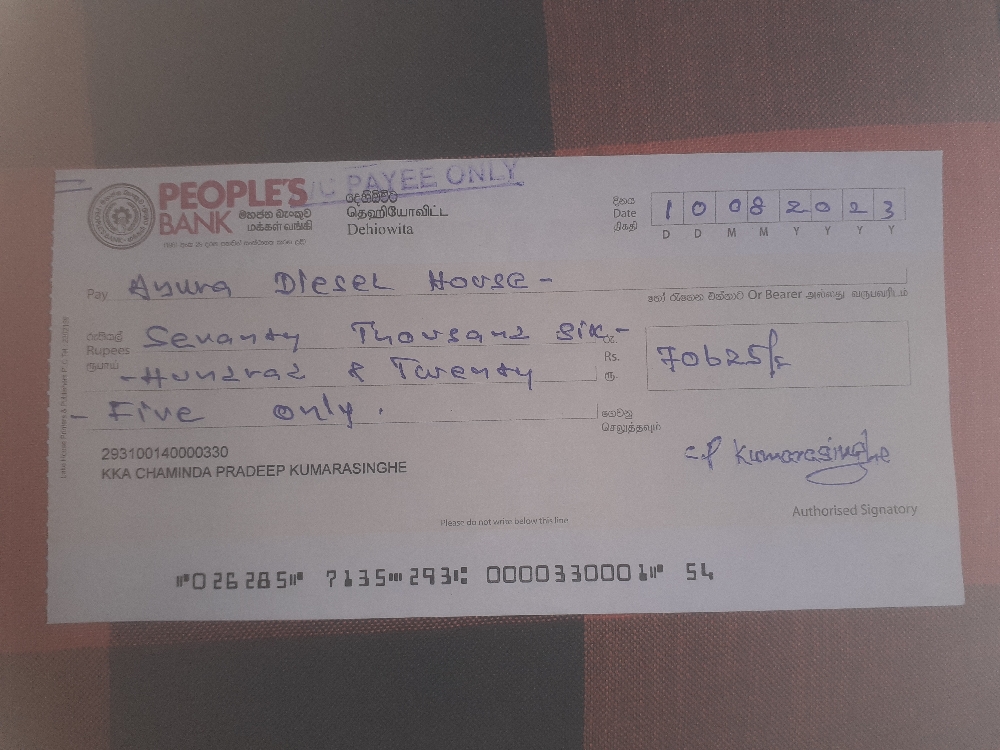 A/C PAYEE ONLY
PEOPLE'S
BANK
මහජන බැංකුව
மக்கள் வங்கி
දෙහිඕවිට
தெஹியோவிட்ட
Dehiowita
දිනය
Date
திகதி
1 0 0 8 2 0 2 3
D D M M Y Y Y Y
Pay Ayura Diesel House -
හෝ රැගෙන එන්නාට Or Bearer அல்லது வருபவரிடம்
රුපියල්
Rupees
ரூபாய்
Sevanty Thousand Six -
- Hundrad & Twenty
- Five only .
රු.
Rs.
ரூ.
70625/-
ගෙවනු
செலுத்தவும்
293100140000330
KKA CHAMINDA PRADEEP KUMARASINGHE
CP Kumarasinghe
Authorised Signatory
Please do not write below this line
⑈026285⑈ 7135⑉293⑆ 0000330001⑈ 54